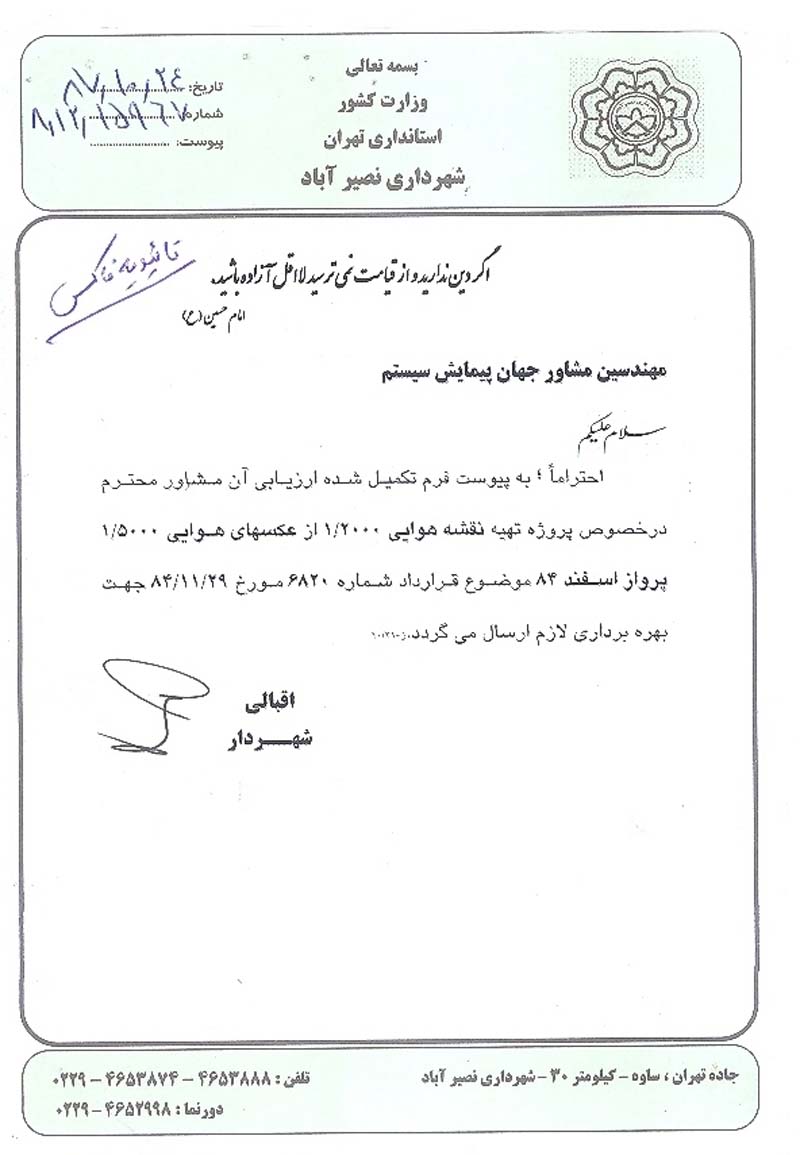 بسمه تعالی
وزارت کشور
استانداری تهران
شهرداری نصیر آباد
تاریخ: ۸۷,۱۰,۲۴
شماره: ۸,۱۲,۱۵۹۶۷
پیوست:
اگر دین ندارید و از قیامت نمی ترسید لااقل آزاده باشید.
امام حسین (ع)
مهندسین مشاور جهان پیمایش سیستم
سلام علیکم
احتراماً ؛ به پیوست فرم تکمیل شده ارزیابی آن مشاور محترم
درخصوص پروژه تهیه نقشه هوایی ۱/۲۰۰۰ از عکسهای هوایی ۱/۵۰۰۰
پرواز اسفند ۸۴ موضوع قرارداد شماره ۶۸۲۰ مورخ ۸۴/۱۱/۲۹ جهت
بهره برداری لازم ارسال می گردد.
اقبالی
شهردار
جاده تهران ، ساوه – کیلومتر ۳۰ – شهرداری نصیر آباد
تلفن : ۴۶۵۳۸۸۸ – ۴۶۵۳۸۷۴ – ۰۲۲۹
دورنما : ۴۶۵۲۹۹۸ – ۰۲۲۹